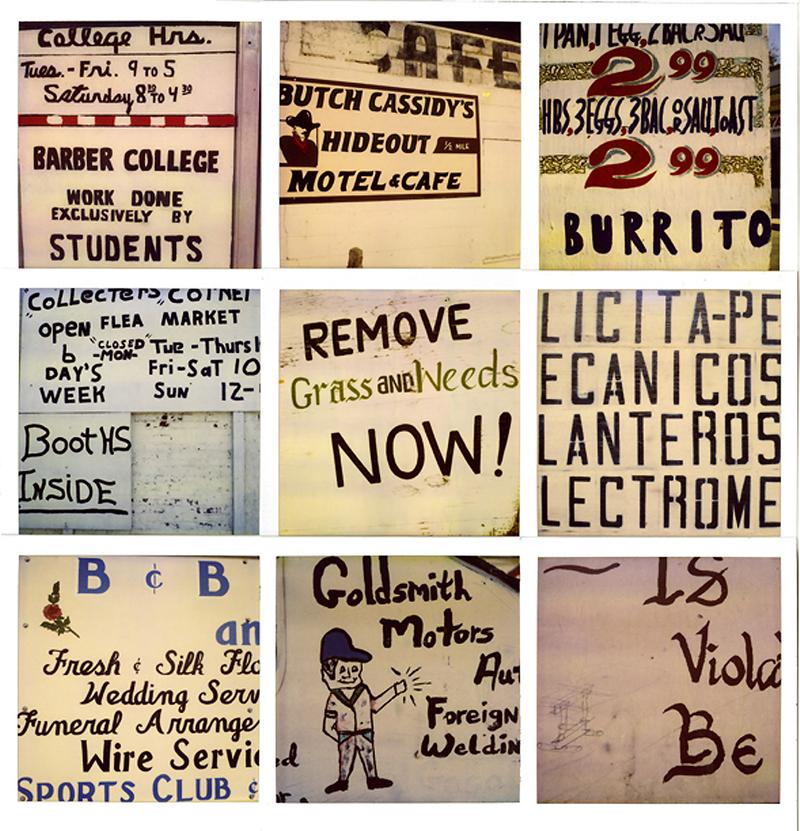 College Hrs.
Tues.-Fri. 9 TO 5
Saturday 8³⁰ TO 4³⁰
BARBER COLLEGE
WORK DONE
EXCLUSIVELY BY
STUDENTS
CAFE
BUTCH CASSIDY'S
HIDEOUT ½ MILE
MOTEL & CAFE
1 PAN, 1 EGG, 2 BAC R SAU
2 99
HBS, 3 EGGS, 3 BAC, R SAU, ToAST
2 99
BURRITO
"COLLECTERS CORNER
"open FLEA MARKET
6 "CLOSED" Tue - Thurs
DAY'S -MON- Fri-SaT 10
WEEK Sun 12-
BooTHS
INSIDE
REMOVE
Grass AND Weeds
NOW!
LICITA-PE
ECANICOS
LANTEROS
LECTROME
B & B
an
Fresh & Silk Flo
Wedding Serv
Funeral Arrange
Wire Servic
SPORTS CLUB &
Goldsmith
Motors
Aut
Foreign
Weldin
ed
Is
Viola
Be